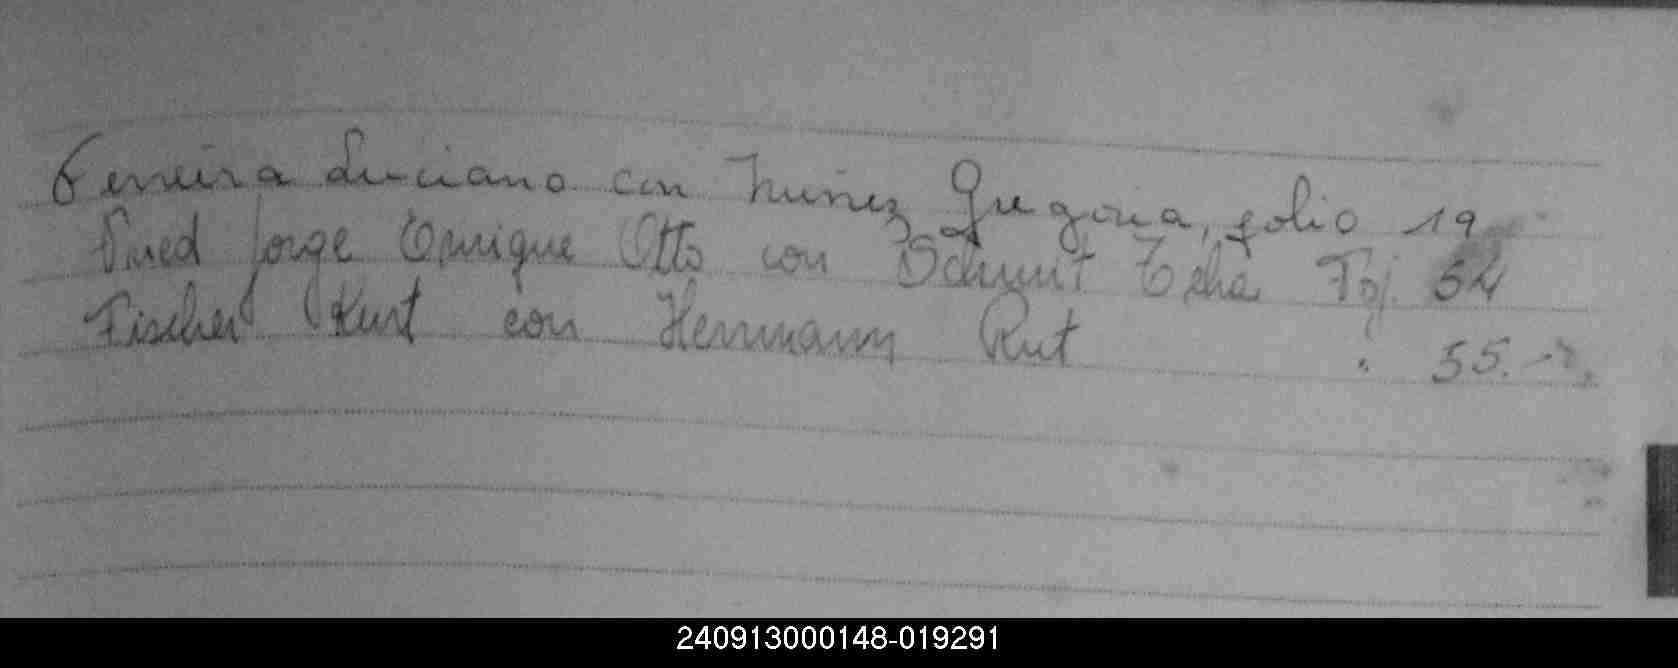 Ferreira Luciano con Nuñez Gregoria, folio 19
Jorge Enrique Otto con Schmit Foj. 54
Fischer Kurt con Herrmann Rut " 55.-
240913000148-019291